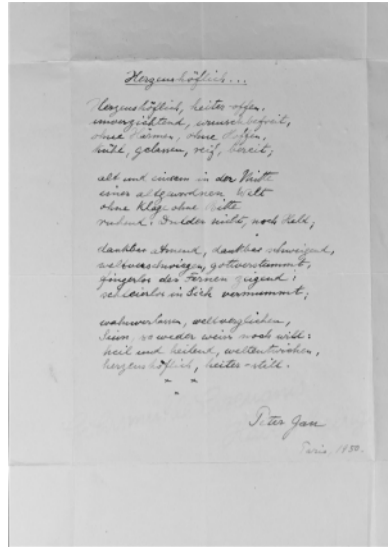 Herzenshöflich...
Herzenshöflich, heiter-offen,
unverzichtend, wunschbefreit,
ohne Härmen, ohne Hoffen,
kühl, gelassen, reif, bereit;
alt und einsam in der Mitte
einer altgewordnen Welt
ohne Klage ohne Bitte
ruhend: Dulder nicht, noch Held;
dankbar atmend, dankbar schweigend,
weltverschwiegen, gottverstummt,
fingerlos des Fernen zeigend:
schleierlos in Sich vermummt;
wahnverlassen, weltverglichen,
Sinn, so weder weiss noch will:
heil und heilend, weltentwichen,
herzenshöflich, heiter-still.
Peter Gan
Paris. 1950.